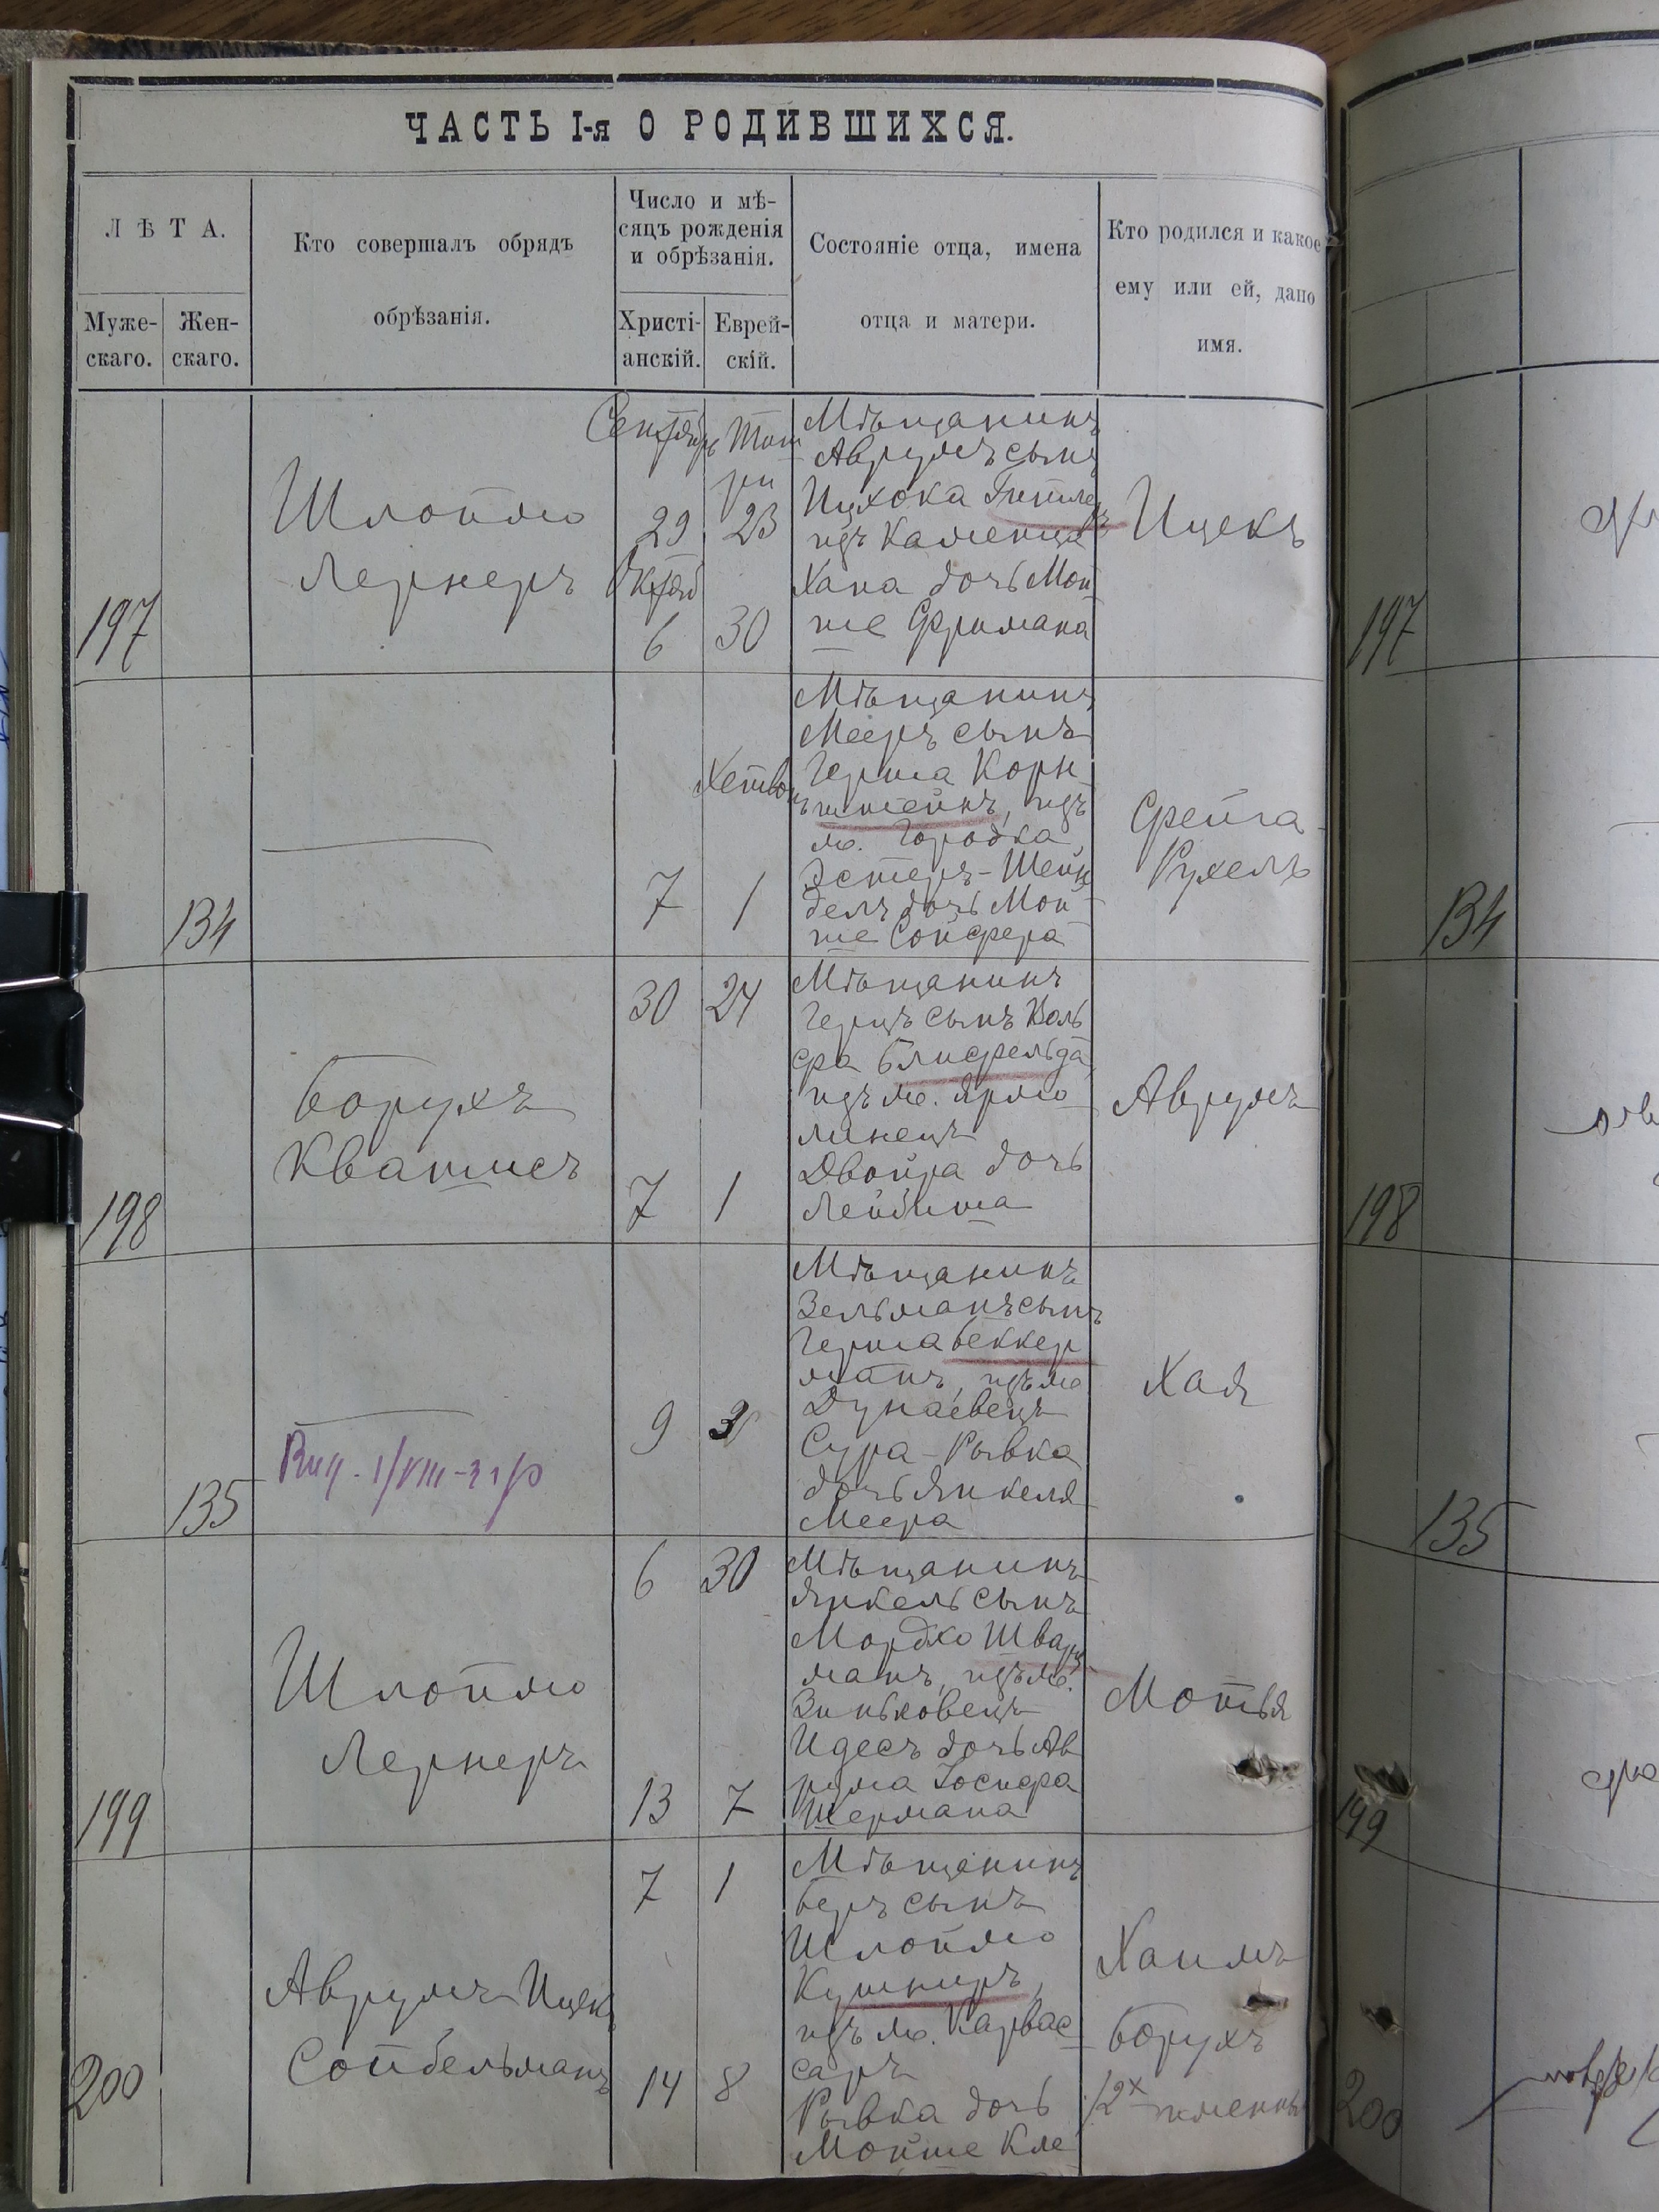 ЧАСТЬ I-я О РОДИВШИХСЯ.
ЛѢТА.
Муже-
скаго.
Жен-
скаго.
Кто совершалъ обрядъ
обрѣзанія.
Число и мѣ-
сяцъ рожденія
и обрѣзанія.
Христі-
анскій.
Еврей-
скій.
Состояніе отца, имена
отца и матери.
Кто родился и какое
ему или ей, дано
имя.
197
Шлоймо
Лернеръ
Сентябрь
29
Октяб
6
Тиш
ри
23
30
Мѣщанинъ
Аврумъ сынъ
Ицхока
изъ Каменца
Хана дочь Мой
ше Фримана
Ицекъ
197
134
7
Хешвонъ
1
Мѣщанинъ
Мееръ сынъ
Герша Корн
штейнъ, изъ
м. Городка
Эстеръ-Шейн
делъ дочь Мой
ше Сойфера
Фейга-
Рухель
134
198
Борухъ
Квашисъ
30
7
24
1
Мѣщанинъ
Герцъ сынъ Воль
фа Блифельда,
изъ м. Ярмо
линецъ
Двойра дочь
Лейбиша
Аврумъ
198
135
9
3
Мѣщанинъ
Зельманъ сынъ
Герша Беккер
манъ, изъ м.
Дунаевецъ
Сура-Рывка
дочь Янкеля
Меера
Хая
135
199
Шлоймо
Лернеръ
6
13
30
7
Мѣщанинъ
Янкель сынъ
Мордко Шварц
манъ, изъ м.
Зиньковецъ
Идесъ дочь Ав
рума Іосифа
Шермана
Мотья
199
200
Аврумъ-Ицекъ
Сойбельманъ
7
14
1
8
Мѣщанинъ
Беръ сынъ
Шлоймо
Кушниръ,
изъ м. Карвас
саръ
Рывка дочь
Мойше Кле
Хаимъ
Борухъ
/2х именны
200